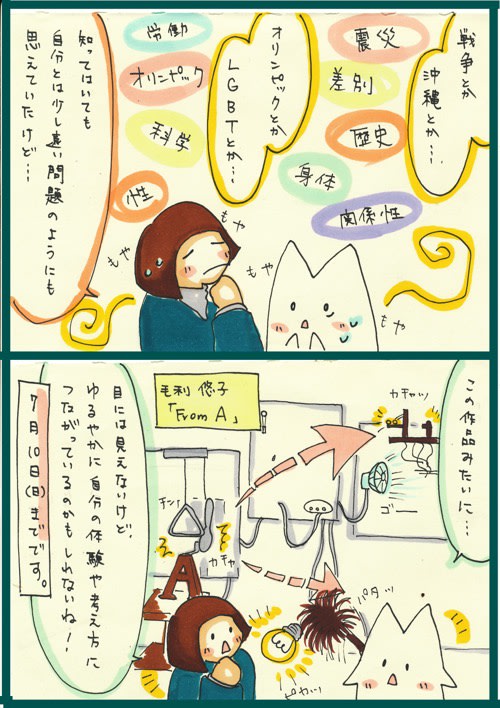 戦争とか
沖縄とか・・・。
震災
差別
歴史
身体
関係性
オリンピックとか
LGBTとか・・・。
労働
オリンピック
科学
性
知ってはいても
自分とは少し遠い問題のようにも
思えていたけど・・・
もや
もや
もや
もや
この作品みたいに・・・
カチャッ
ゴー
毛利 悠子
「From A」
チン!
カチャ
A
パタッ
ピカッ
目には見えないけど、
ゆるやかに自分の体験や考え方に
つながっているのかもしれないね!
7月10日(日)までです。